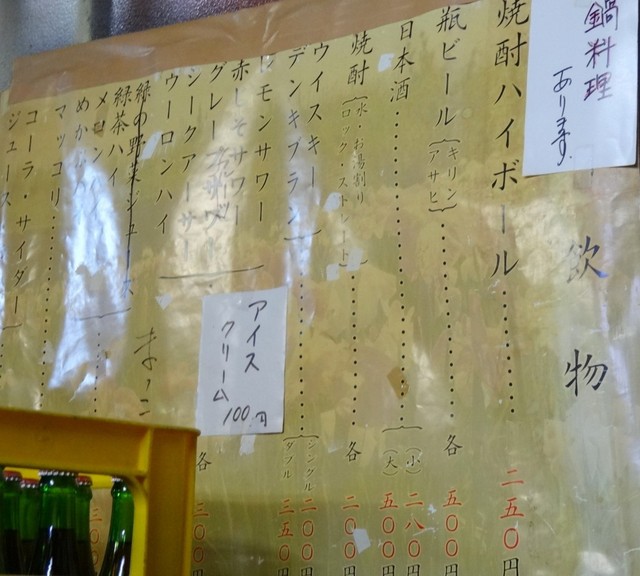 鍋料理
あります。
飲物
焼酎ハイボール 二五〇円
瓶ビール(キリン・アサヒ) 各 五〇〇円
日本酒 (小) 二八〇円
(大) 五〇〇円
焼酎(水・お湯割り
ロック・ストレート) 各 二〇〇円
ウイスキー
デンキブラン
シングル 二〇〇円
ダブル 三五〇円
レモンサワー
ホーそサワー
グレー
シークアーサー
ウーロンハイ
各 三〇〇円
緑の野菜ジュース
緑茶ハイ
マッコリ
コーラ・サイダー
ジュース
アイス
クリーム
100円